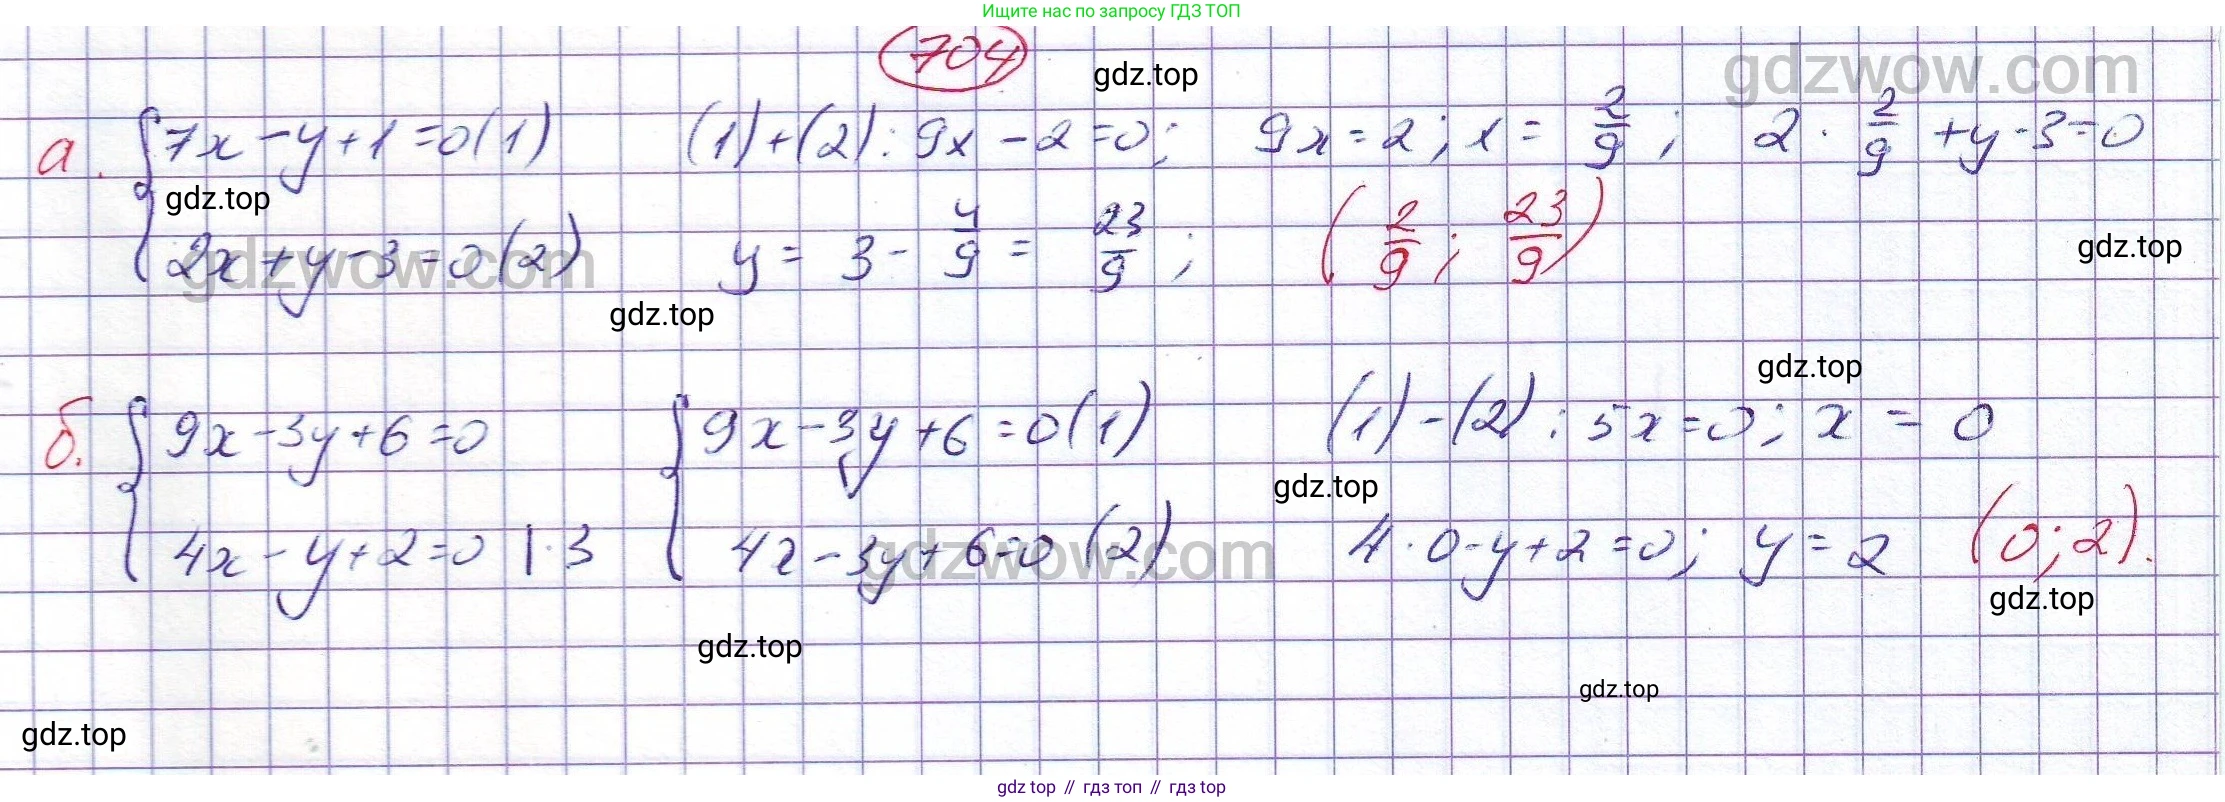 Ищите нас по запросу ГДЗ ТОП
704
gdz.top
gdzwow.com
а. {7x - y + 1 = 0 (1) (1) + (2): 9x - 2 = 0; 9x = 2; x = 2/9; 2 · 2/9 + y - 3 = 0
gdz.top
gdz.top
{2x + y - 3 = 0 (2) y = 3 - 4/9 = 23/9; (2/9; 23/9)
gdzwow.com
gdz.top
gdz.top
б. {9x - 3y + 6 = 0 {9x - 3y + 6 = 0 (1) (1) - (2): 5x = 0; x = 0
gdz.top
{4x - y + 2 = 0 | · 3 {4x - 3y + 6 = 0 (2) 4 · 0 - y + 2 = 0; y = 2 (0; 2).
gdzwow.com
gdz.top
gdz.top
gdz.top
gdz.top
gdz top // гдз топ // гдз top